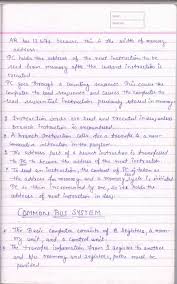 AR has 12 bits because this is the width of memory
address.
PC holds the address of the next instruction to be
read from memory after the current instruction is
executed.
PC goes through a counting sequence. This causes the
computer to read sequential instructions previously stored in memory
Instruction words are read and executed in sequence unless
branch instruction is encountered.
A branch instruction calls for a transfer to a non-
consecutive instruction in the program.
The address part of a branch instruction is transferred
to PC to become the address of the next instruction
To read an instruction, the content of PC is taken as
the address for memory and a memory cycle is initiated
PC is then incremented by one, so it holds the
address of next instruction in
COMMON BUS SYSTEM
The Basic Computer consists of 8 registers, a mem-
ory unit, and a control unit.
The transfer information from 1 register to another
and b/w memory and registers, paths must be
provided